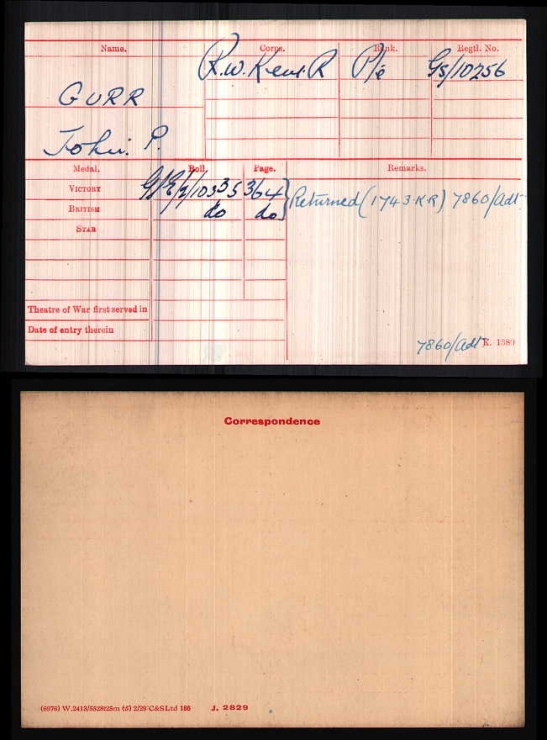 Name. Corps. Rank. Regtl. No.
R.W. Kent. R Pte GS/10256
GURR
John. P.
Medal. Roll. Page. Remarks.
VICTORY 3364 Returned (1743 KR) 7860/Adt
BRITISH do do
STAR
Theatre of War first served in
Date of entry therein
7860/Adt K. 1380
Correspondence
(6976) 2/29 C&S Ltd 188 J. 2829